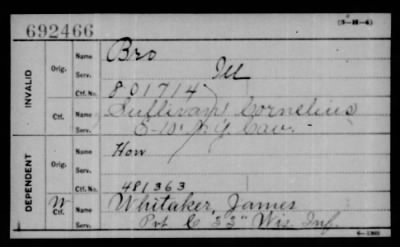 692466
(3-216.)
INVALID
Orig.
Name Bro
Serv. Ill
Ctf. No. 801714
Ctf.
Name Sullivan, Cornelius
Serv. E-10" N.Y. Cav.
DEPENDENT
Orig.
Name How
Serv.
Ctf. No. 481363
W
Ctf.
Name Whitaker, James
Serv. Pvt C "33" Wis. Inf.